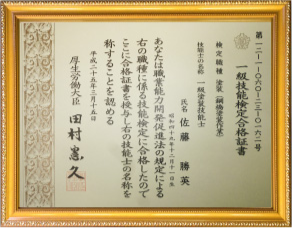 第一二-一-〇六〇-二三-〇一六二号
一級技能検定合格証書
検定職種 塗装（鋼橋塗装作業）
技能士の名称 一級塗装技能士
氏名 佐藤 勝英
昭和四十九年十二月十一日生
あなたは職業能力開発促進法の規定による
右の職種に係る技能検定に合格したので
ここに合格証書を授与し右の技能士の名称を
称することを認める
平成二十五年三月十五日
厚生労働大臣 田村憲久